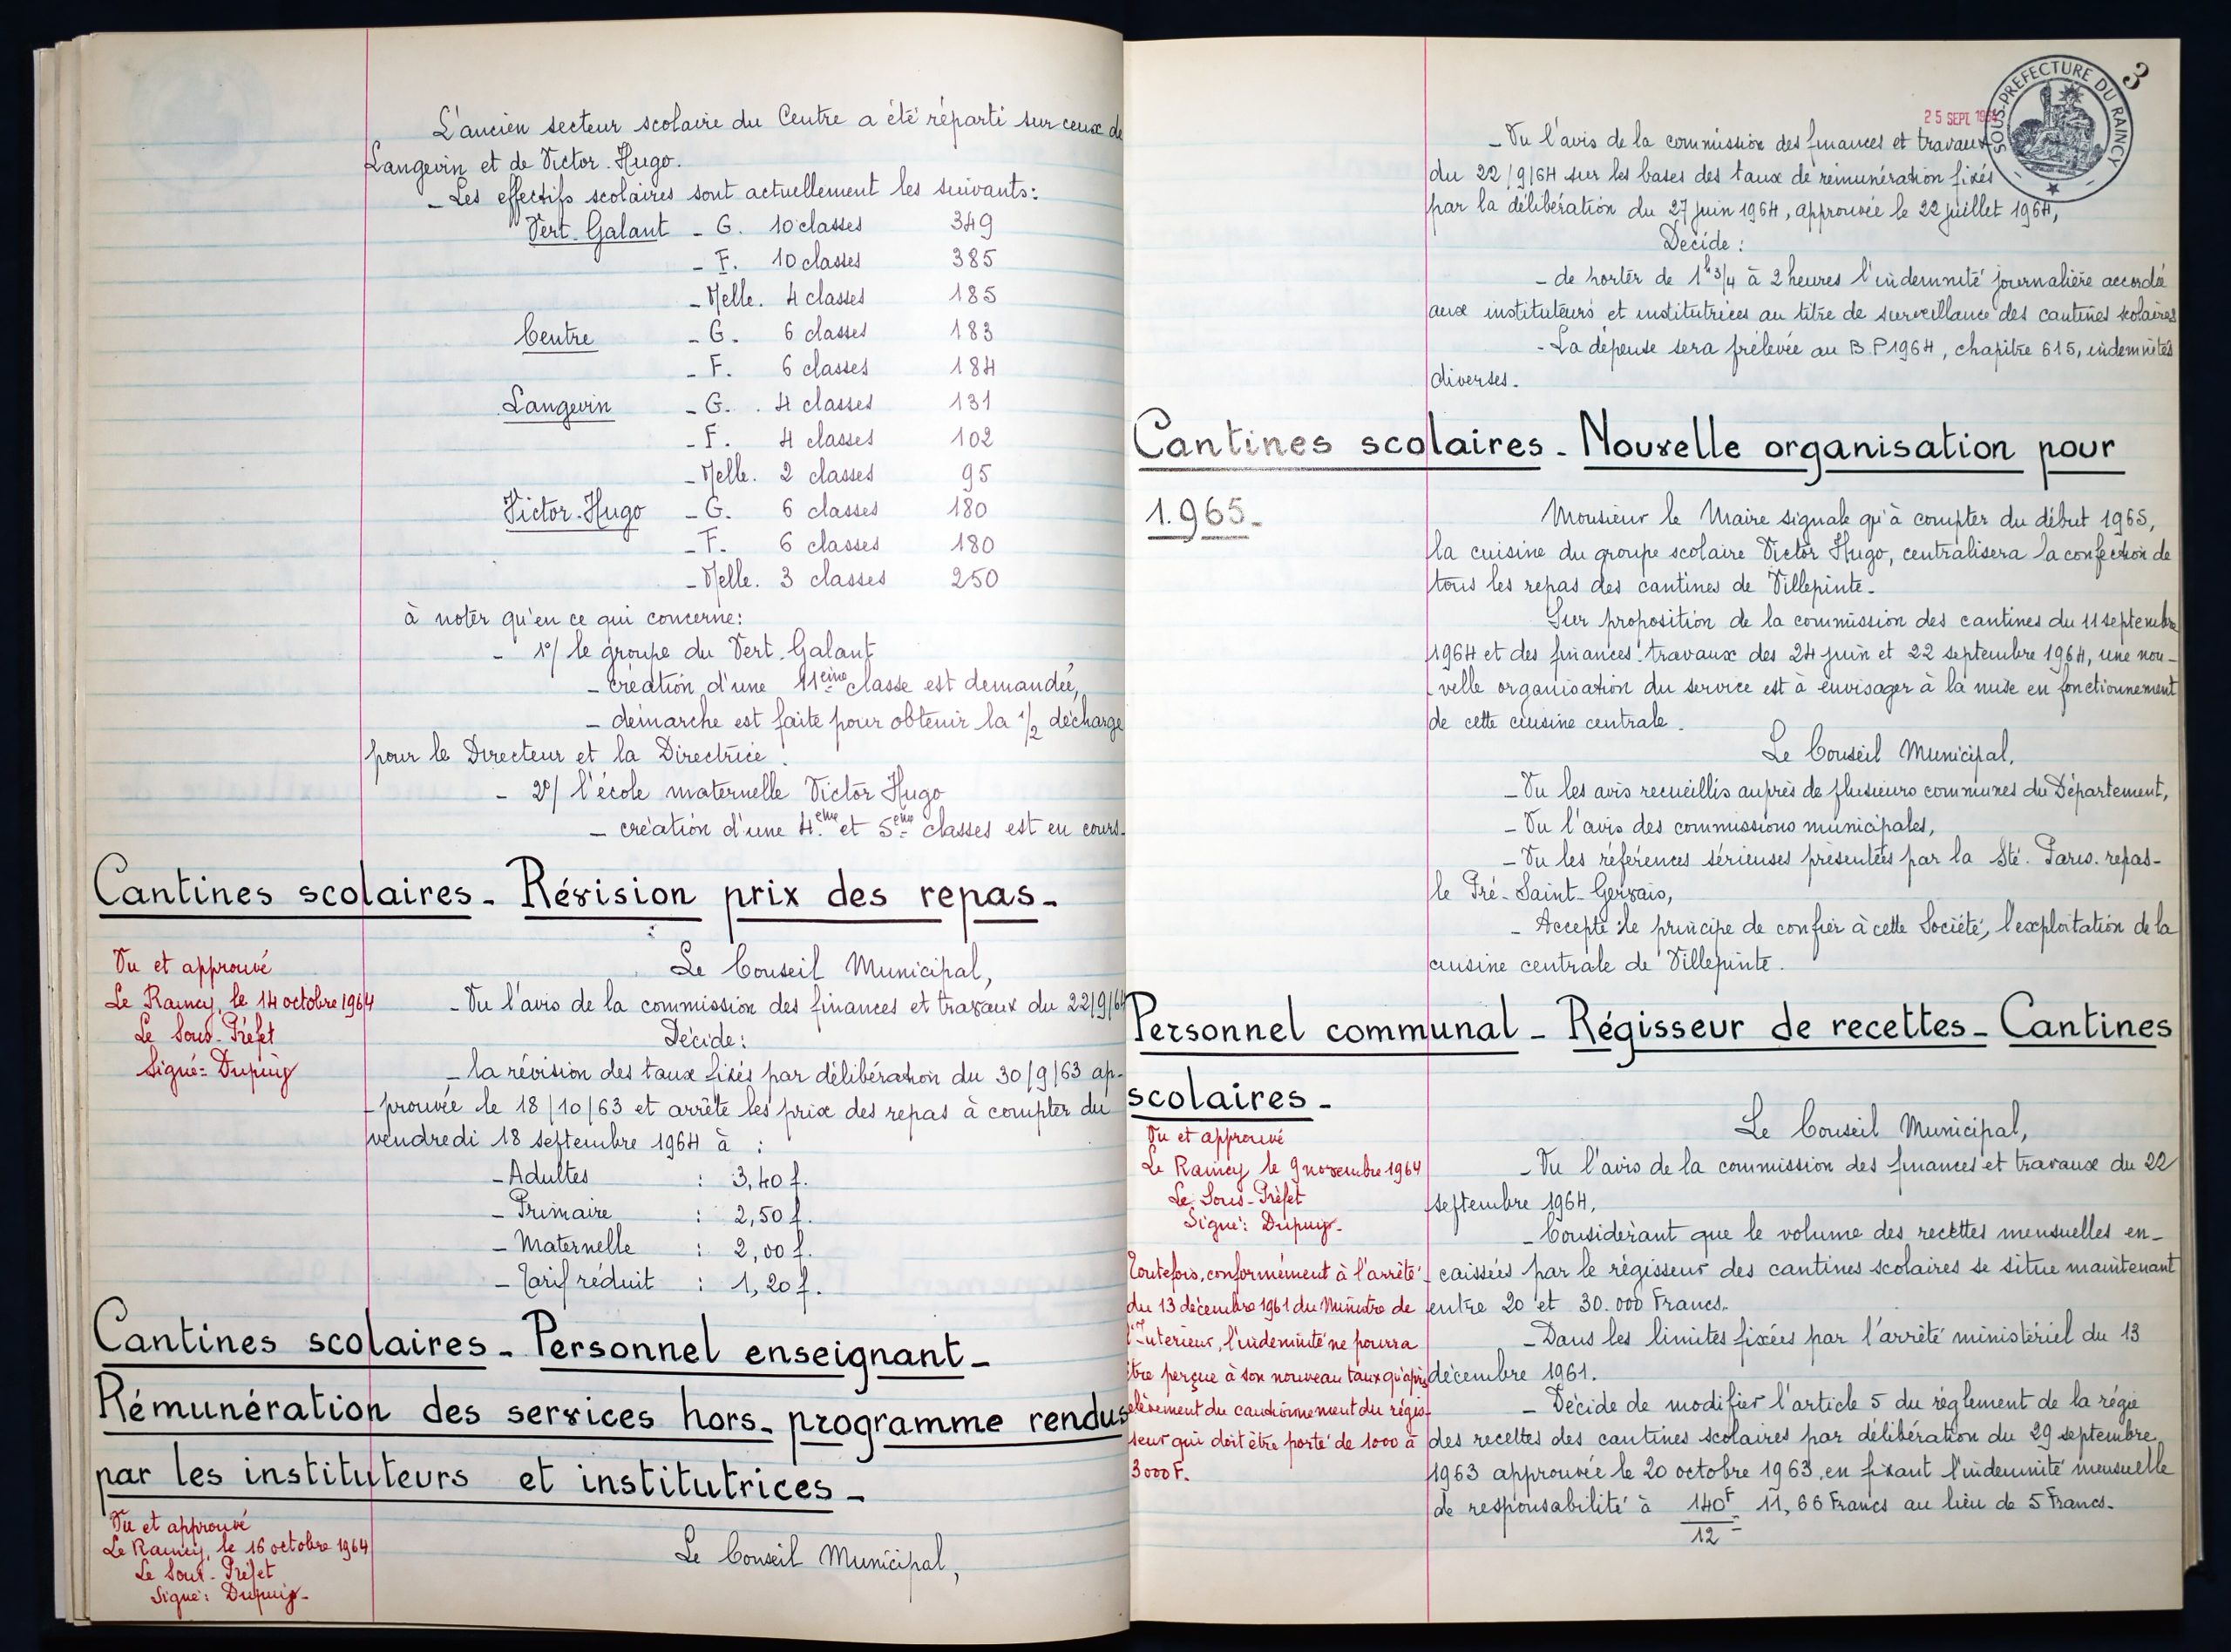 L'ancien secteur scolaire du Centre a été réparti sur ceux de
Langevin et de Victor-Hugo.
- Les effectifs scolaires sont actuellement les suivants:
Vert-Galant - G. 10 classes 349
- F. 10 classes 385
- Melle. 4 classes 185
Centre - G. 6 classes 183
- F. 6 classes 184
Langevin - G. 4 classes 131
- F. 4 classes 102
- Melle. 2 classes 95
Victor-Hugo - G. 6 classes 180
- F. 6 classes 180
- Melle. 3 classes 250
à noter qu'en ce qui concerne:
- 1°/ le groupe du Vert-Galant
- création d'une 11ème classe est demandée,
- démarche est faite pour obtenir la 1/2 décharge
pour le Directeur et la Directrice.
- 2°/ l'école maternelle Victor Hugo
- création d'une 4ème et 5ème classes est en cours.
Cantines scolaires - Révision prix des repas -
Vu et approuvé
Le Raincy, le 14 octobre 1964
Le Sous-Préfet
Signé: Dupuiy
Le Conseil Municipal,
- Vu l'avis de la commission des finances et travaux du 22/9/64
Décide:
- la révision des taux fixés par délibération du 30/9/63 ap-
-prouvée le 18/10/63 et arrête les prix des repas à compter du
vendredi 18 septembre 1964 à :
- Adultes : 3,40 f.
- Primaire : 2,50 f.
- Maternelle : 2,00 f.
- Tarif réduit : 1,20 f.
Cantines scolaires - Personnel enseignant -
Rémunération des services hors-programme rendus
par les instituteurs et institutrices -
Vu et approuvé
Le Raincy, le 16 octobre 1964
Le Sous-Préfet
Signé: Dupuiy-
Le Conseil Municipal,
3
25 SEPT 1964
SOUS-PREFECTURE DU RAINCY
- Vu l'avis de la commission des finances et travaux
du 22/9/64 sur les bases des taux de rémunération fixés
par la délibération du 27 juin 1964, approuvée le 22 juillet 1964,
Décide:
- de porter de 1h3/4 à 2 heures l'indemnité journalière accordée
aux instituteurs et institutrices au titre de surveillance des cantines scolaires
- La dépense sera prélevée au B.P 1964, chapitre 615, indemnités
diverses.
Cantines scolaires - Nouvelle organisation pour
1.965-
Monsieur le Maire signale qu'à compter du début 1965,
la cuisine du groupe scolaire Victor Hugo, centralisera la confection de
tous les repas des cantines de Villepinte.
Sur proposition de la commission des cantines du 11 septembre
1964 et des finances-travaux des 24 juin et 22 septembre 1964, une nou-
-velle organisation du service est à envisager à la mise en fonctionnement
de cette cuisine centrale.
Le Conseil Municipal,
- Vu les avis recueillis auprès de plusieurs communes du Département,
- Vu l'avis des commissions municipales,
- Vu les références sérieuses présentées par la Sté. Paris-repas-
le Pré-Saint-Gervais,
- Accepte le principe de confier à cette Société, l'exploitation de la
cuisine centrale de Villepinte.
Personnel communal - Régisseur de recettes - Cantines
scolaires -
Vu et approuvé
Le Raincy le 9 novembre 1964
Le Sous-Préfet
Signé: Dupuiy-
Toutefois, conformément à l'arrêté
du 13 décembre 1961 du Ministre de
l'Intérieur, l'indemnité ne pourra
être perçue à son nouveau taux qu'après
élèvement du cautionnement du régis-
seur qui doit être porté de 1000 à
3000 F.
Le Conseil Municipal,
- Vu l'avis de la commission des finances et travaux du 22
septembre 1964,
- Considérant que le volume des recettes mensuelles en-
-caissées par le régisseur des cantines scolaires se situe maintenant
entre 20 et 30.000 Francs.
- Dans les limites fixées par l'arrêté ministériel du 13
décembre 1961.
- Décide de modifier l'article 5 du règlement de la régie
des recettes des cantines scolaires par délibération du 29 septembre
1963 approuvée le 20 octobre 1963, en fixant l'indemnité mensuelle
de responsabilité à 140F/12 = 11,66 Francs au lieu de 5 Francs.